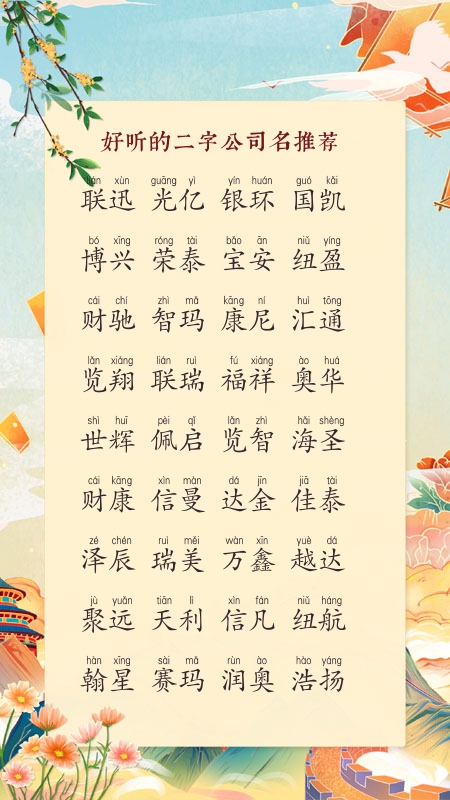 好听的二字公司名推荐
lián xùn guāng yì yín huán guó kǎi
联迅 光亿 银环 国凯
bó xīng róng tài bǎo ān niǔ yíng
博兴 荣泰 宝安 纽盈
cái chí zhì mǎ kāng ní huì tōng
财驰 智玛 康尼 汇通
lǎn xiáng lián ruì fú xiáng ào huá
览翔 联瑞 福祥 奥华
shì huī pèi qǐ lǎn zhì hǎi shèng
世辉 佩启 览智 海圣
cái kāng xìn màn dá jīn jiā tài
财康 信曼 达金 佳泰
zé chén ruì měi wàn xīn yuè dá
泽辰 瑞美 万鑫 越达
jù yuǎn tiān lì xìn fán niǔ háng
聚远 天利 信凡 纽航
hàn xīng sài mǎ rùn ào hào yáng
翰星 赛玛 润奥 浩扬